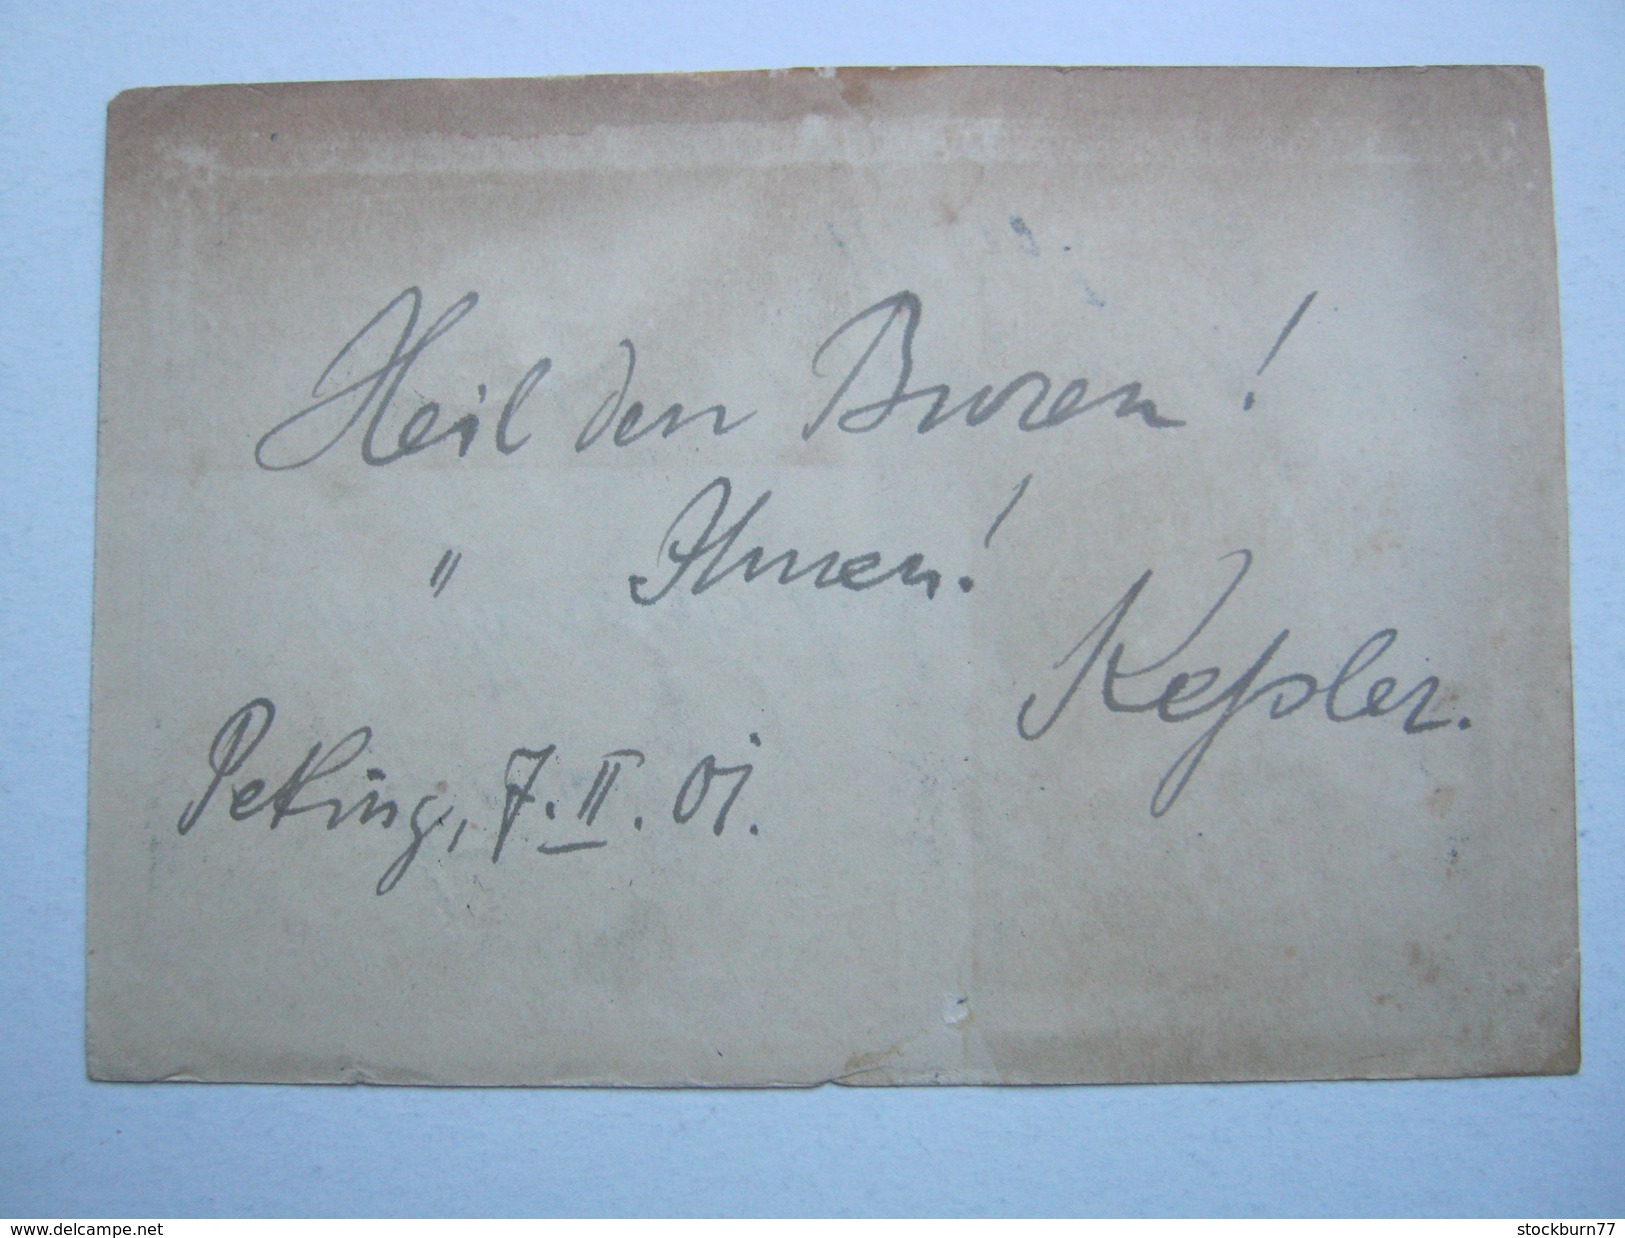 Heil den Buren!
" Ihnen!
Keßler.
Peking, 7. II. 01.
www.delcampe.net
stockburn77